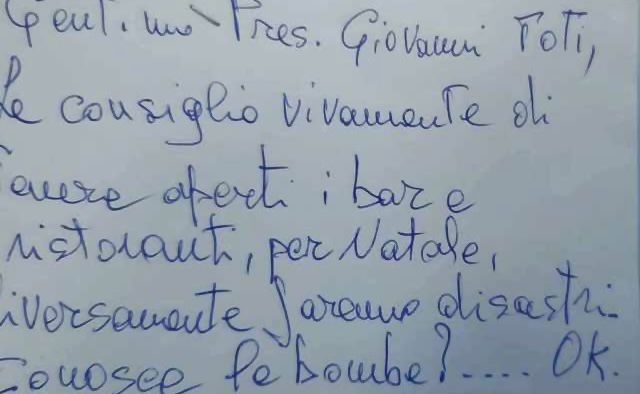 Gent.mo Pres. Giovanni Toti,
Le consiglio vivamente di
tenere aperti i bar e
ristoranti, per Natale,
diversamente faremo disastri.
Conosce le bombe?.... OK.